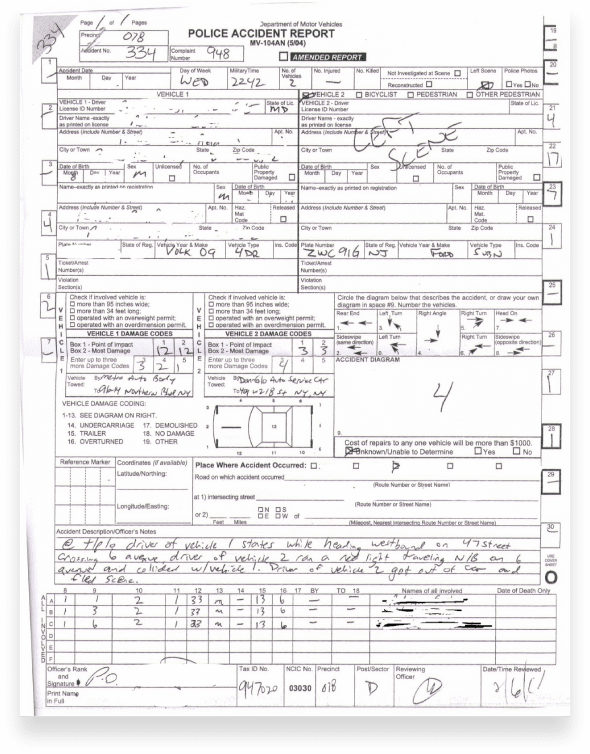 334
Page 1 of 1 Pages
Department of Motor Vehicles
Precinct 078
POLICE ACCIDENT REPORT
MV-104AN (5/04)
Accident No. 334 Complaint Number 948
AMENDED REPORT
Accident Date Month Day Year Day of Week WED Military Time 2242 No. of Vehicles 2 No. Injured No. Killed Not Investigated at Scene Left Scene Police Photos
Reconstructed Yes No
VEHICLE 1 VEHICLE 2 BICYCLIST PEDESTRIAN OTHER PEDESTRIAN
VEHICLE 1 - Driver License ID Number State of Lic. MD VEHICLE 2 - Driver License ID Number State of Lic.
Driver Name -exactly as printed on license Driver Name - exactly as printed on license
Address (Include Number & Street) Apt. No. Address (Include Number & Street) Apt. No.
City or Town State Zip Code City or Town State Zip Code
LEFT SCENE
Date of Birth Month Day Year Sex M Unlicensed No. of Occupants Public Property Damaged Date of Birth Month Day Year Sex Unlicensed No. of Occupants Public Property Damaged
Name-exactly as printed on registration Sex M Date of Birth Month Day Year Name-exactly as printed on registration Sex Date of Birth Month Day Year
Address (Include Number & Street) Apt. No. Haz. Mat. Code Released Address (Include Number & Street) Apt. No. Haz. Mat. Code Released
City or Town State Zip Code City or Town State Zip Code
Plate Number State of Reg. Vehicle Year & Make VOLK 09 Vehicle Type 4DR Ins. Code Plate Number ZWC91G State of Reg. NJ Vehicle Year & Make FORD Vehicle Type SUBN Ins. Code
Ticket/Arrest Number(s) Ticket/Arrest Number(s)
Violation Section(s) Violation Section(s)
Check if involved vehicle is: Check if involved vehicle is: Circle the diagram below that describes the accident, or draw your own
more than 95 inches wide; more than 95 inches wide; diagram in space #9. Number the vehicles.
more than 34 feet long; more than 34 feet long; Rear End Left Turn Right Angle Right Turn Head On
operated with an overweight permit; operated with an overweight permit;
operated with an overdimension permit. operated with an overdimension permit.
VEHICLE 1 DAMAGE CODES VEHICLE 2 DAMAGE CODES Sideswipe (same direction) Left Turn Right Turn Sideswipe (opposite direction)
Box 1 - Point of Impact 1 2 Box 1 - Point of Impact 1 2
Box 2 - Most Damage 12 12 Box 2 - Most Damage 3 3
Enter up to three more Damage Codes 3 2 1 Enter up to three more Damage Codes 4 ACCIDENT DIAGRAM
Vehicle Towed: By Metro Auto Body Vehicle Towed: By Auto Service Ctr
4
VEHICLE DAMAGE CODING:
1-13. SEE DIAGRAM ON RIGHT.
14. UNDERCARRIAGE 17. DEMOLISHED
15. TRAILER 18. NO DAMAGE
16. OVERTURNED 19. OTHER
9.
Cost of repairs to any one vehicle will be more than $1000.
Unknown/Unable to Determine Yes No
Reference Marker Coordinates (if available) Place Where Accident Occurred:
Latitude/Northing: Road on which accident occurred
(Route Number or Street Name)
at 1) intersecting street
(Route Number or Street Name)
Longitude/Easting: or 2) N S E W of
Feet Miles (Milepost, Nearest Intersecting Route Number or Street Name)
Accident Description/Officer's Notes
@ t/p/o driver of vehicle 1 states while heading westbound on 47 Street
Crossing 6 avenue driver of vehicle 2 ran a red light traveling N/B on 6
avenue and collided w/vehicle 1. Driver of vehicle 2 got out of car and
fled scene.
USE COVER SHEET
8 9 10 11 12 13 14 15 16 17 BY TO 18 Names of all involved Date of Death Only
A 1 1 2 1 33 M - 13 6 - -
B 1 3 2 1 33 M - 13 6 - -
C 1 6 2 1 33 M - 13 6 - -
D
E
F
ALL INVOLVED
Officer's Rank and Signature P.O. Tax ID No. 947020 NCIC No. 03030 Precinct 018 Post/Sector D Reviewing Officer Date/Time Reviewed
Print Name in Full